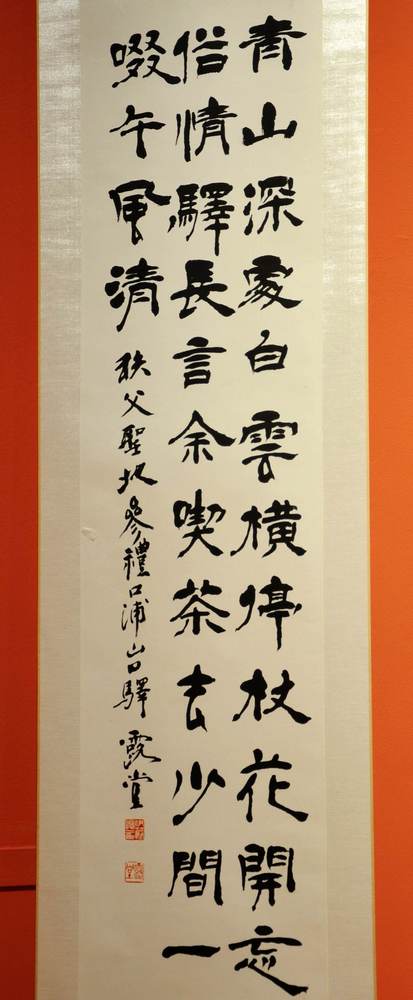 青山深處白雲橫停杖花開忘
俗情驛長言余喫茶去少間一
啜午風清
秩父聖地參禮口浦山口驛 霞堂